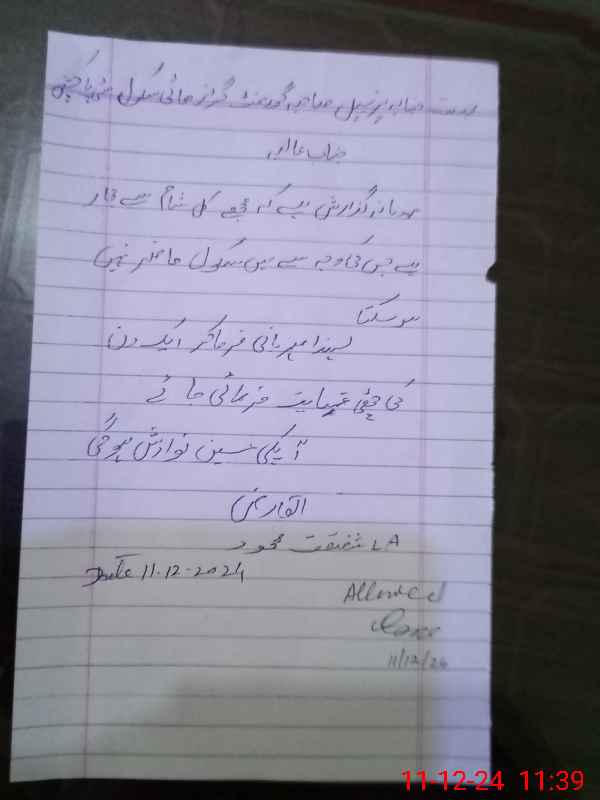 بخدمت جناب پرنسپل صاحب گورنمنٹ گرلز ہائی سکول
جناب عالیہ
مودبانہ گزارش ہے کہ مجھے کل شام سے بخار
ہے جس کی وجہ سے میں سکول حاضر نہیں
ہو سکتا
لہذا مہربانی فرما کر ایک دن
کی چھٹی عنایت فرمائی جائے
آپکی عین نوازش ہوگی
العارض
شفقت محمود LA
Date 11-12-2024
Allowed
11/12/24
11-12-24 11:39